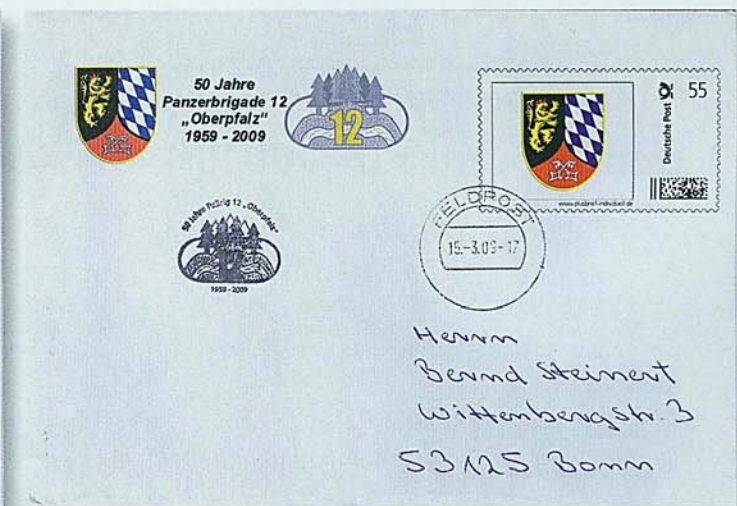 50 Jahre
Panzerbrigade 12
„Oberpfalz“
1959 - 2009
12
Deutsche Post 55
www.plusbrief-individuell.de
50 Jahre PzBrig 12 „Oberpfalz“
1959 - 2009
FELDPOST
15.-3.09-17
Herrn
Bernd Steinert
Wittenbergstr. 3
53125 Bonn